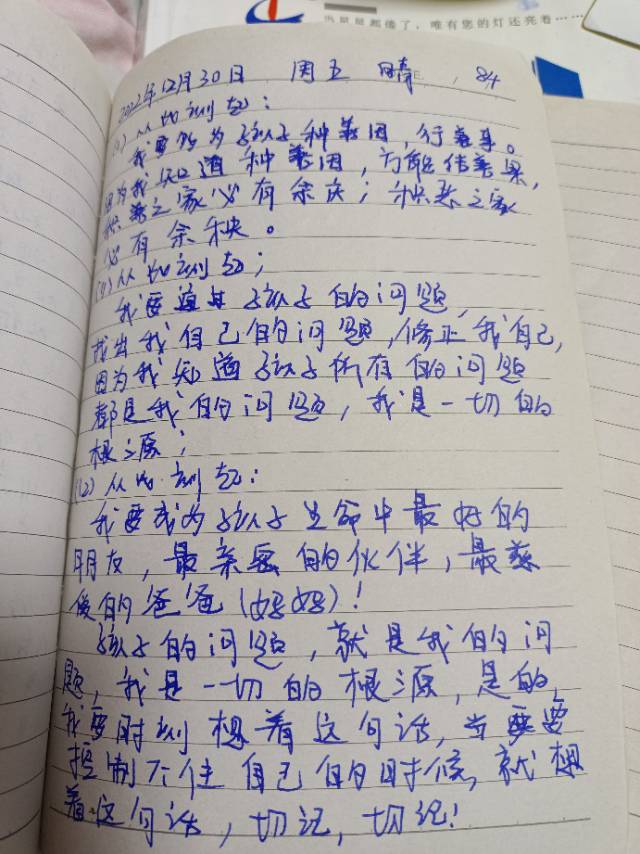 当星星都倦了，唯有您的灯还亮着……
2022年12月30日 周五 晴 84
(1) 从此刻起：
我要多为孩子种善因，行善事。
因为我知道种善因，方能结善果，
积善之家必有余庆；积恶之家
必有余殃。
从此刻起；
我要通过孩子的问题，
找出我自己的问题，修正我自己，
因为我知道孩子所有的问题
都是我的问题，我是一切的
根源；
(12) 从此刻起：
我要成为孩子生命中最好的
朋友，最亲密的伙伴，最慈
爱的爸爸(妈妈)！
孩子的问题，就是我的问
题，我是一切的根源，是的，
我要时刻想着这句话，当要要
控制不住自己的时候，就想
着这句话，切记，切记！